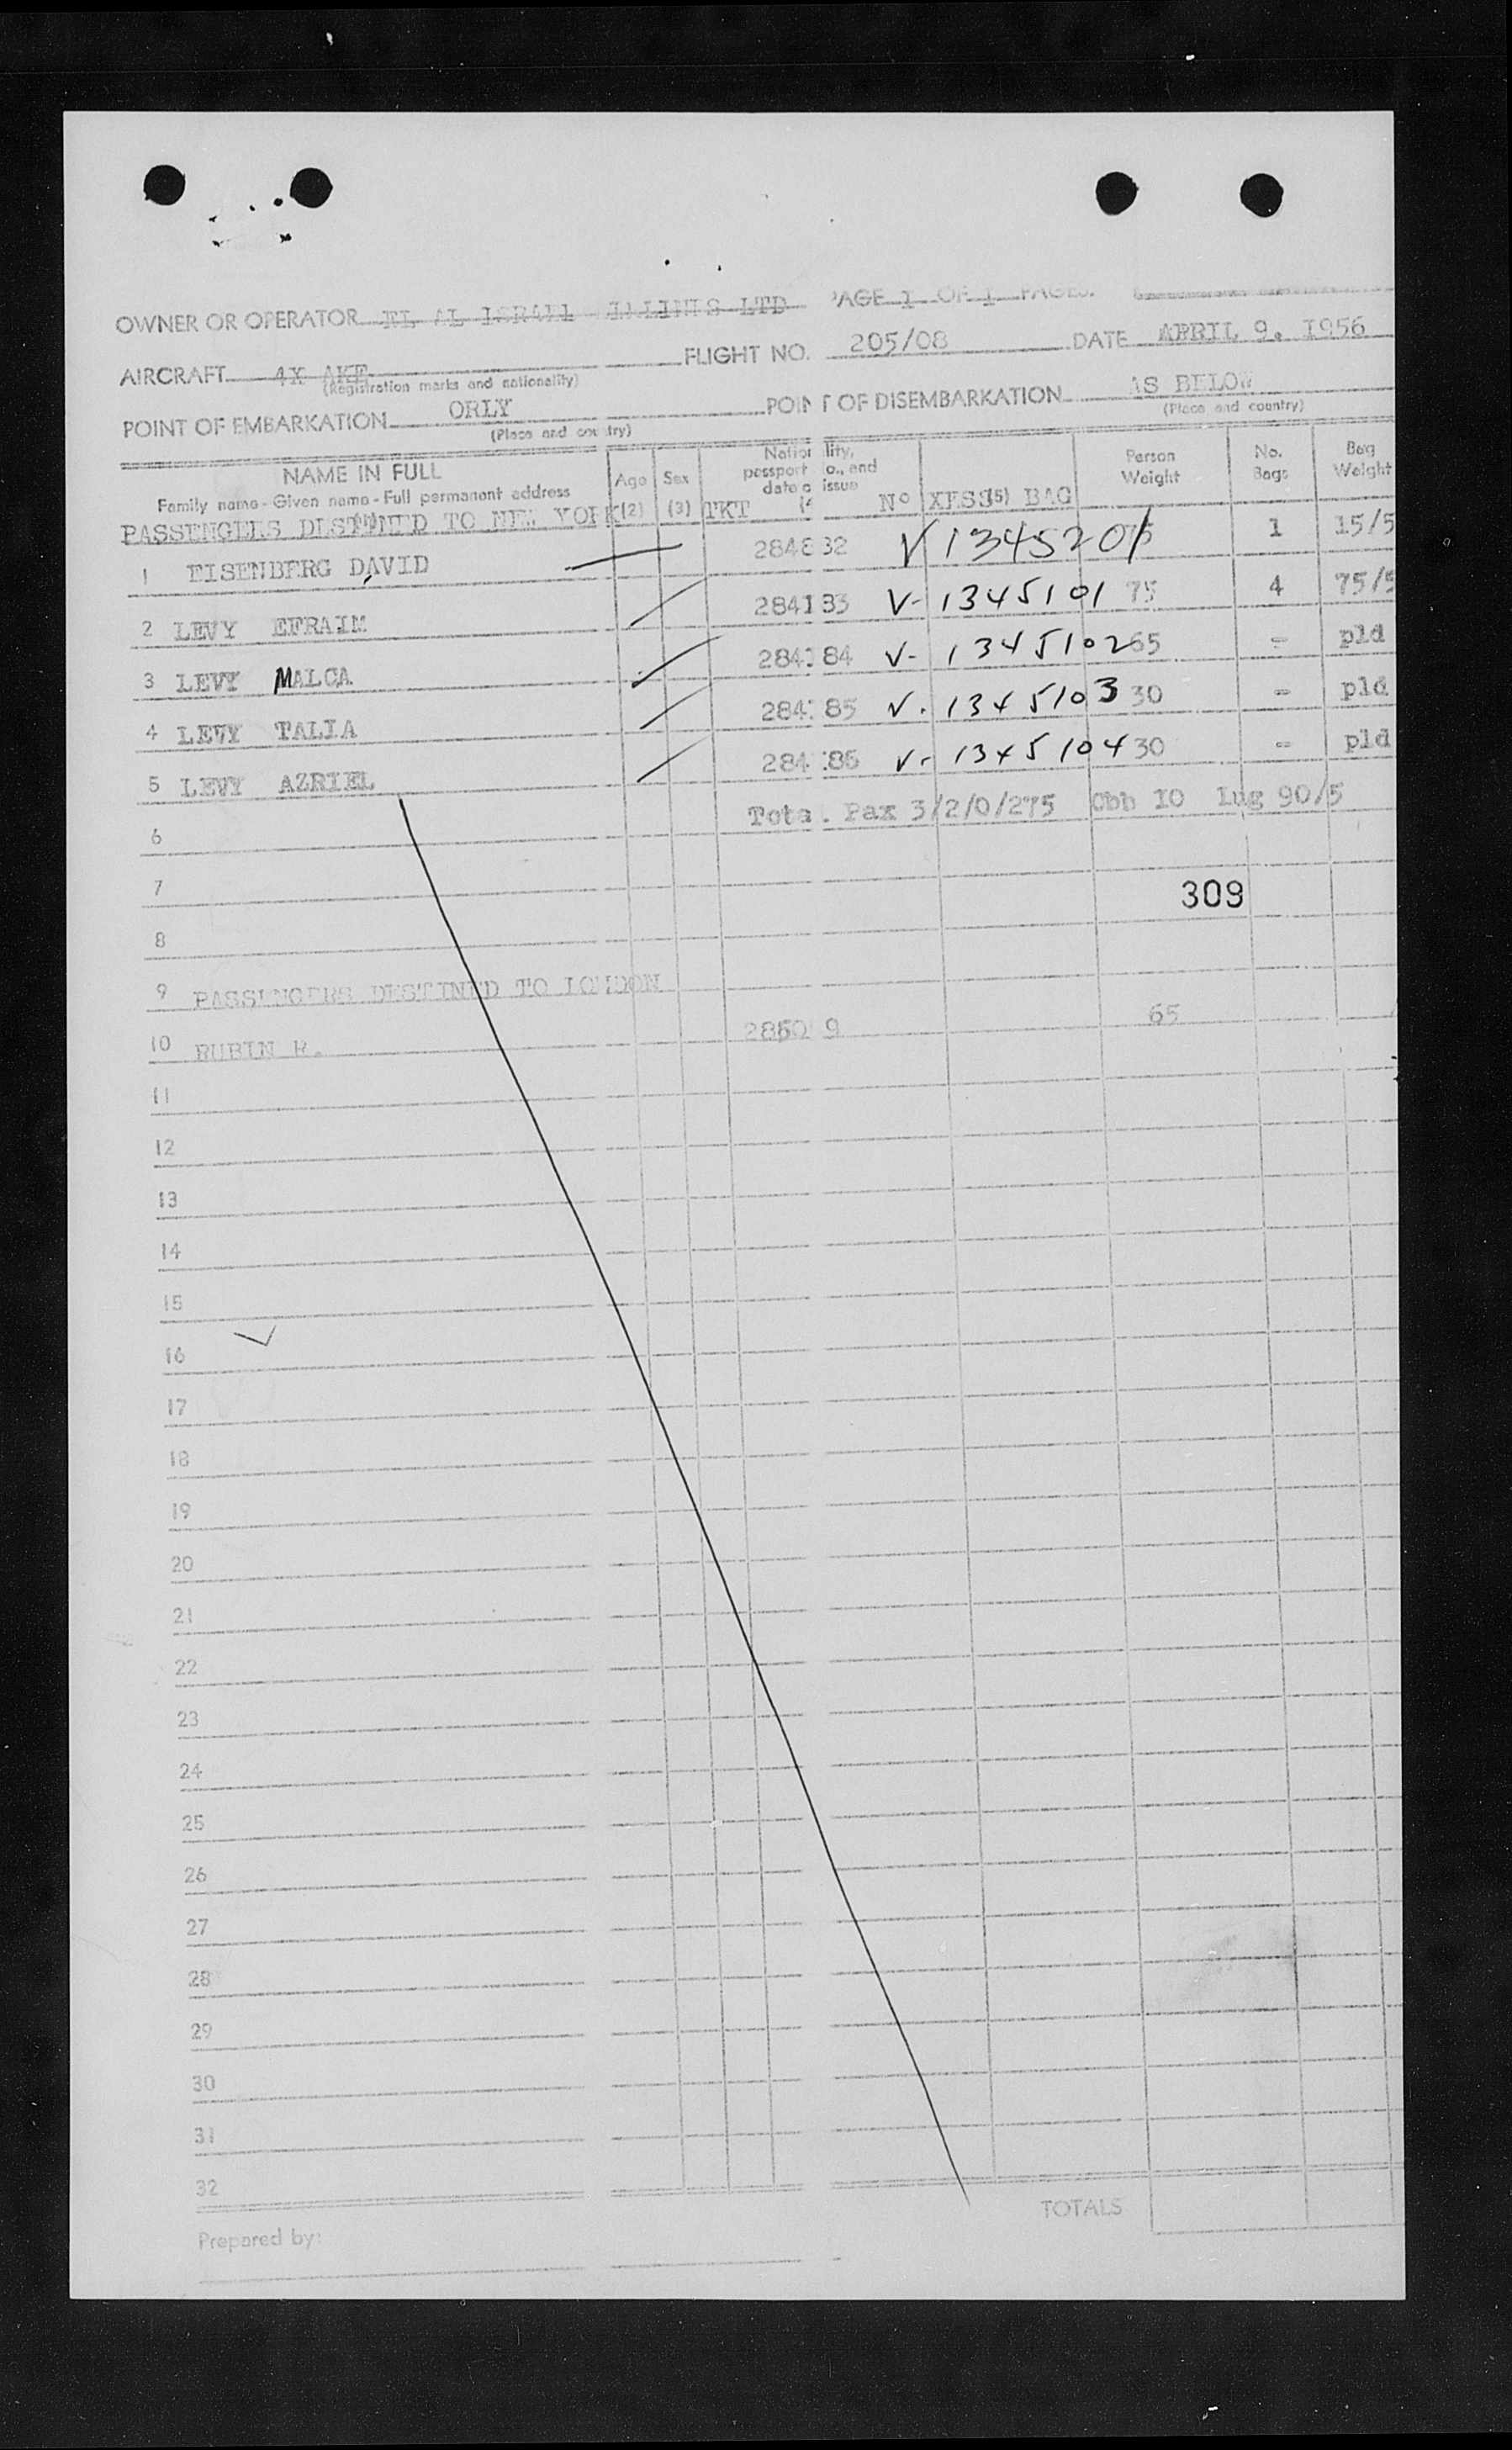 OWNER OR OPERATOR EL AL ISRAEL LTD PAGE 1 OF 1 PAGES.
AIRCRAFT 4X AKE FLIGHT NO. 205/08 DATE APRIL 9. 1956
(Registration marks and nationality)
POINT OF EMBARKATION ORLY POINT OF DISEMBARKATION AS BELOW
(Place and country) (Place and country)
NAME IN FULL Age Sex Nationality, passport no., and date of issue Person Weight No. Bags Bag Weight
Family name - Given name - Full permanent address (2) (3) TKT No XESS (5) BAG
PASSENGERS DESTINED TO NEW YORK
1 EISENBERG DAVID 284832 V 1345201 75 1 15/5
2 LEVY EFRAIM 284183 V- 1345101 75 4 75/5
3 LEVY MALCA 284184 V- 1345102 65 = pld
4 LEVY TALIA 284185 V. 1345103 30 = pld
5 LEVY AZRIEL 284186 V- 1345104 30 = pld
6 Total Pax 3/2/0/275 Cbb 10 Lug 90/5
7
309
8
9 PASSENGERS DESTINED TO LONDON
10 RUBIN 65
11
12
13
14
15
16
17
18
19
20
21
22
23
24
25
26
27
28
29
30
31
32
TOTALS
Prepared by: